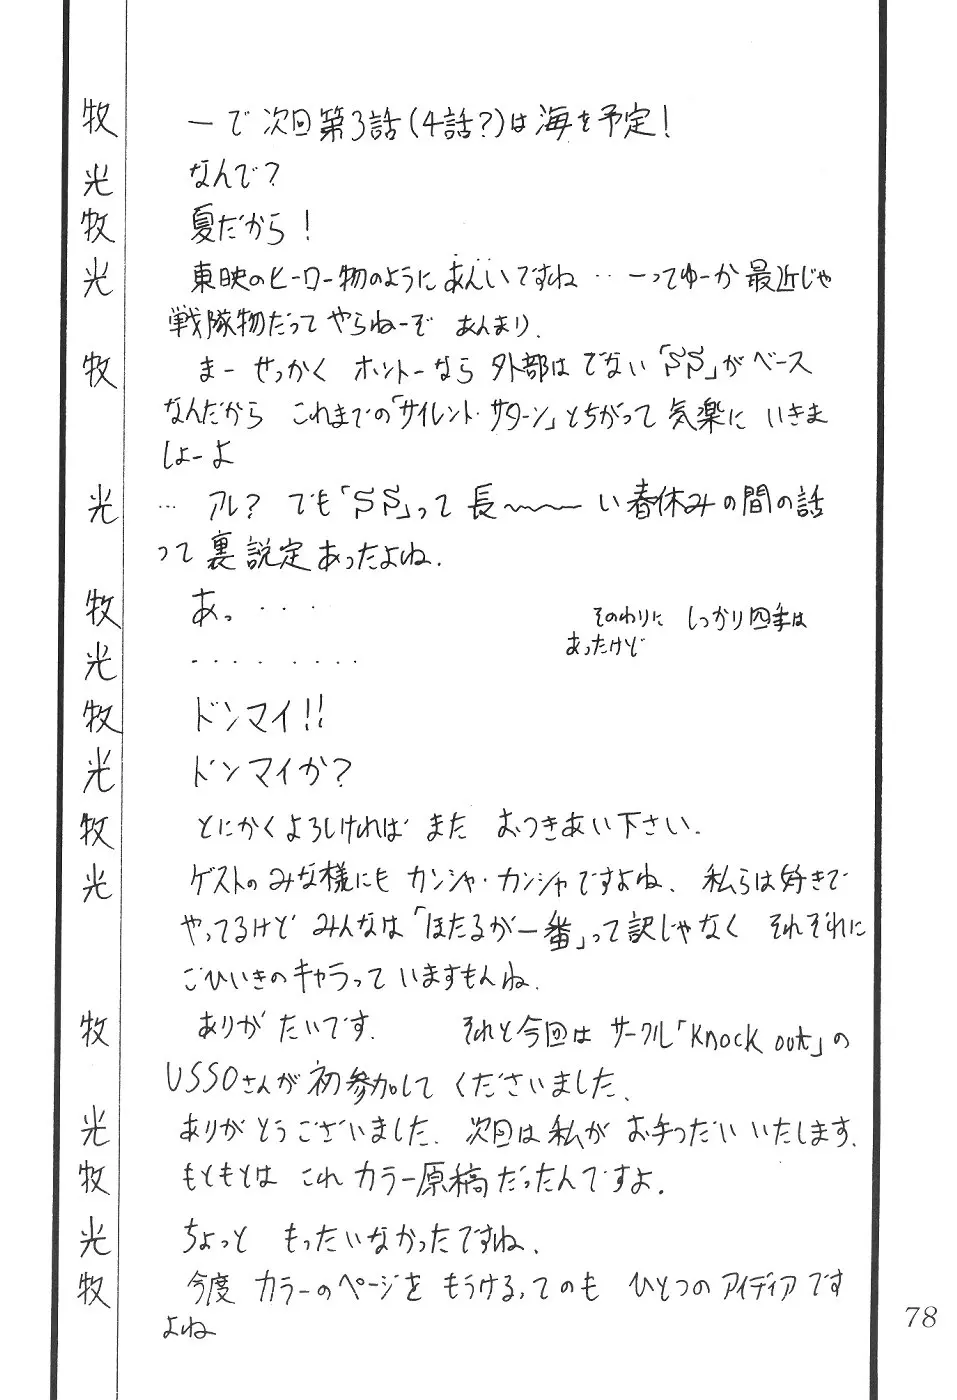 牧 ーで次回第3話(4話?)は海を予定!
光 なんで?
牧 夏だから!
光 東映のヒーロー物のようにあんいですね… ーってゆーか最近じゃ
戦隊物だってやらねーぞ あんまり.
牧 まーせっかく ホントーなら 外部はでない「SS」がベース
なんだから これまでの「サイレント・サターン」とちがって気楽に いきま
しょーよ
光 … アレ? でも「SS」って長〜〜〜い春休みの間の話
って裏設定あったよね.
牧 あっ‥‥
そのわりに しっかり四季は
あったけど
光 ‥‥‥‥
牧 ドンマイ!!
光 ドンマイか?
牧 とにかくよろしければ また おつきあい下さい.
光 ゲストのみな様にも カンシャ・カンシャですよね、私らは好きで
やってるけど みんなは「ほたるが一番」って訳じゃなく それぞれに
ごひいきのキャラって いますもんね.
牧 ありがたいです. それと今回は サークル「Knock out」の
USSOさんが初参加して くださいました.
光 ありがとうございました. 次回は私が お手つだい いたします.
牧 もともとは これ カラー原稿だったんですよ.
光 ちょっと もったいなかったですね.
牧 今度 カラーのページを もうける,てのも ひとつのアイディアです
よね
78